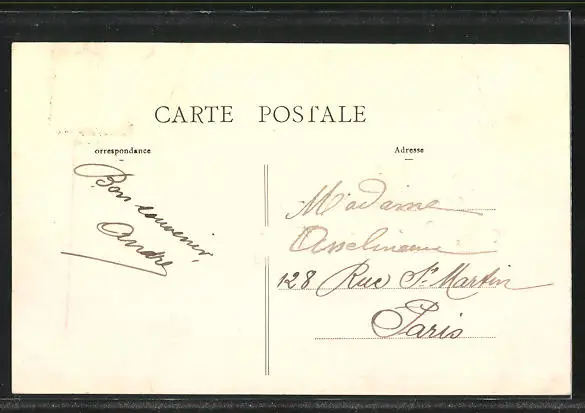 CARTE POSTALE
orrespondance
Adresse
Bon souvenir,
André
Madame
Asselineau
128 Rue St Martin
Paris